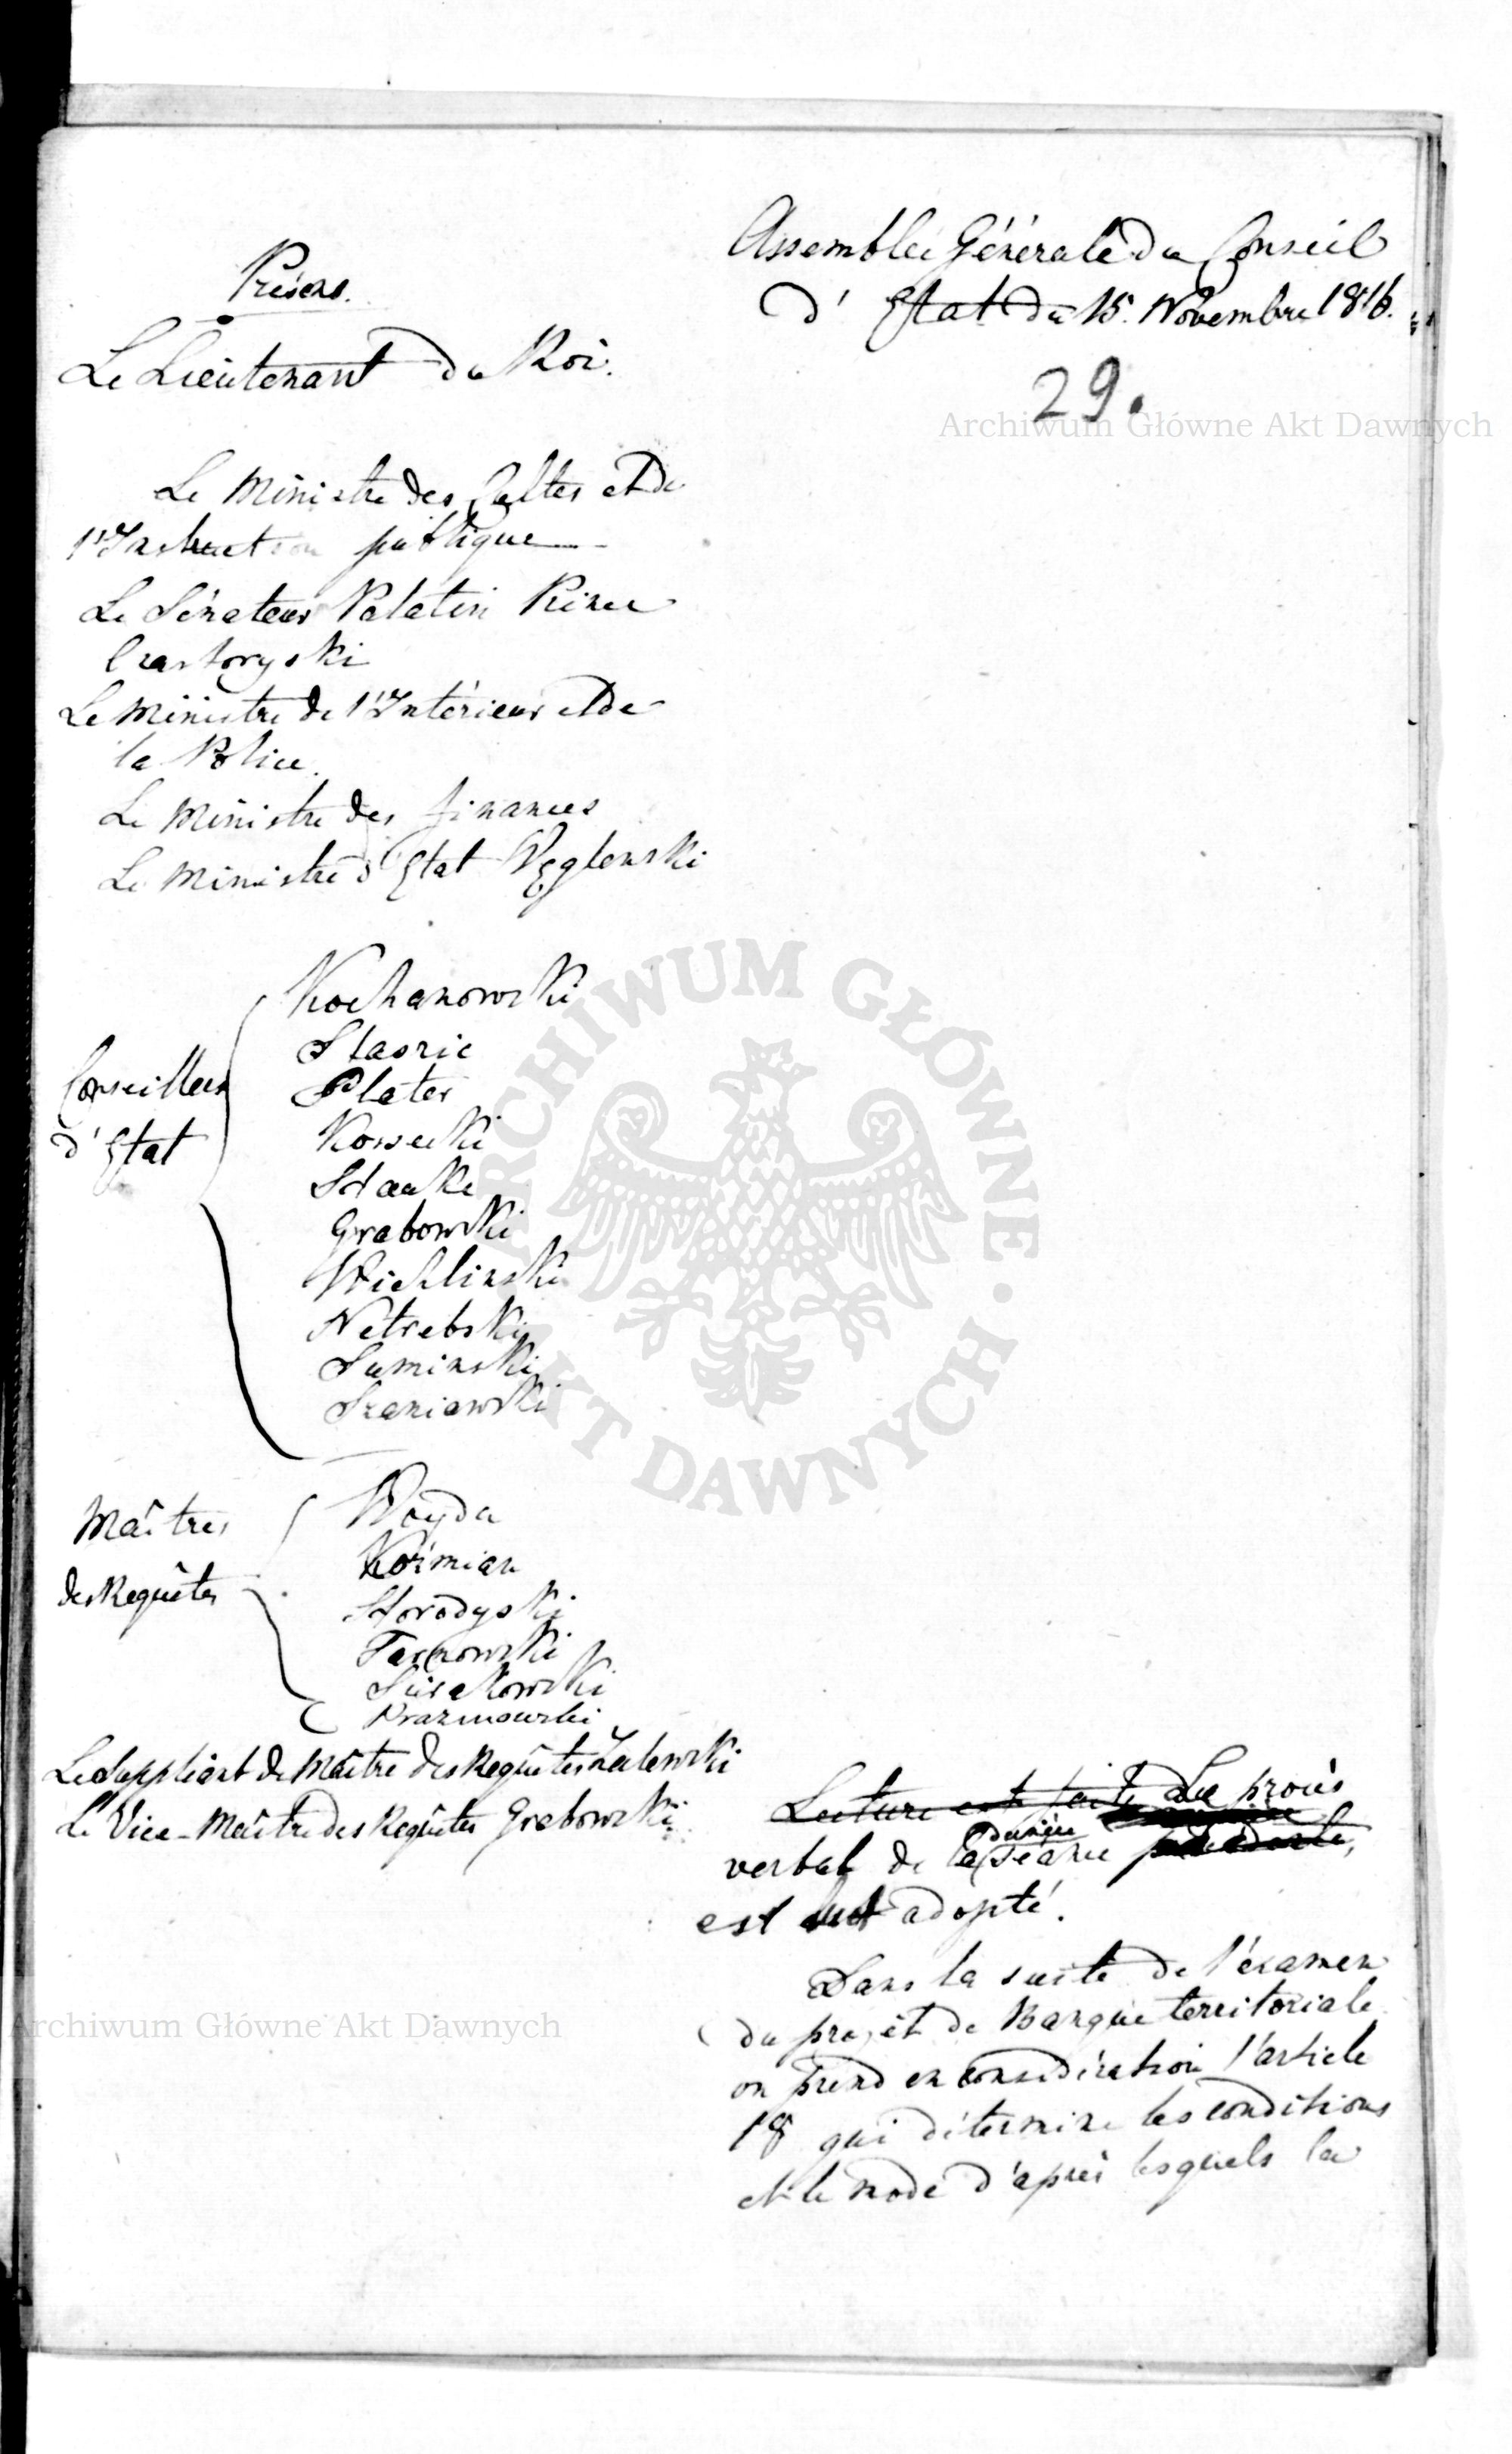 Assemblée Générale du Conseil
d'Etat du 15. Novembre 1816.
29.
Présens.
Le Lieutenant du Roi.
Le Ministre des Cultes et de
l'Instruction publique
Le Sénateur Palatin Prince
Czartoryski
Le Ministre de l'Intérieur et de
la Police.
Le Ministre des finances
Le Ministre d'Etat Węglenski
Conseillers
d'Etat
Kochanowski
Staszic
Plater
Kossecki
Hauke
Grabowski
Wichlinski
Netrebski
Suminski
Szaniawski
Maîtres
des Requêtes
Woyda
Koźmian
Horodyski
Tarnowski
Sierakowski
Prazmowski
Le Suppléant de Maître des Requêtes Zalewski
Le Vice-Maître des Requêtes Grabowski
Lecture est faite Le procès
verbal de la dernière séance précédente,
est adopté.
Dans la suite de l'examen
du projet de Banque territoriale
on prend en considération l'article
18 qui détermine les conditions
et le mode d'après lesquels la
Archiwum Główne Akt Dawnych
ARCHIWUM GŁÓWNE AKT DAWNYCH
Archiwum Główne Akt Dawnych